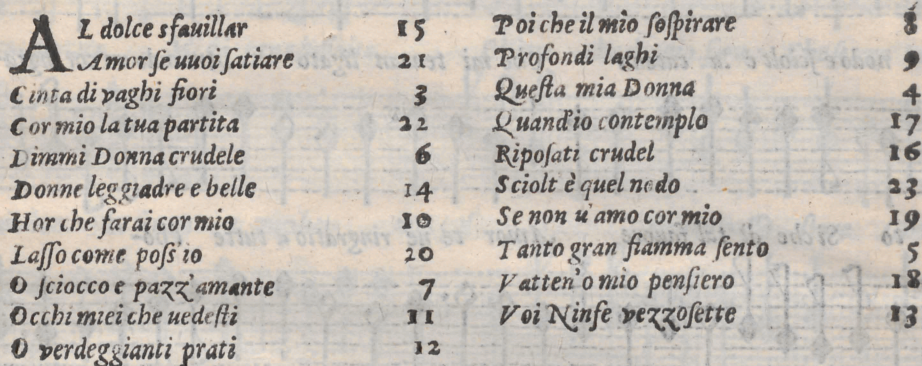 AL dolce sfauillar 15
Amor ſe uuoi ſatiare 21
Cinta di vaghi fiori 3
Cor mio la tua partita 22
Dimmi Donna crudele 6
Donne leggiadre e belle 14
Hor che farai cor mio 10
Laſſo come poſs io 20
O ſciocco e pazz'amante 7
Occhi miei che uedeſti 11
O verdeggianti prati 12
Poi che il mio ſoſpirare 8
Profondi laghi 9
Queſta mia Donna 4
Quand'io contemplo 17
Ripoſati crudel 16
Sciolt è quel nodo 23
Se non u'amo cor mio 19
Tanto gran fiamma ſento 5
Vatten'o mio penſiero 18
Voi Ninfe vezzoſette 13